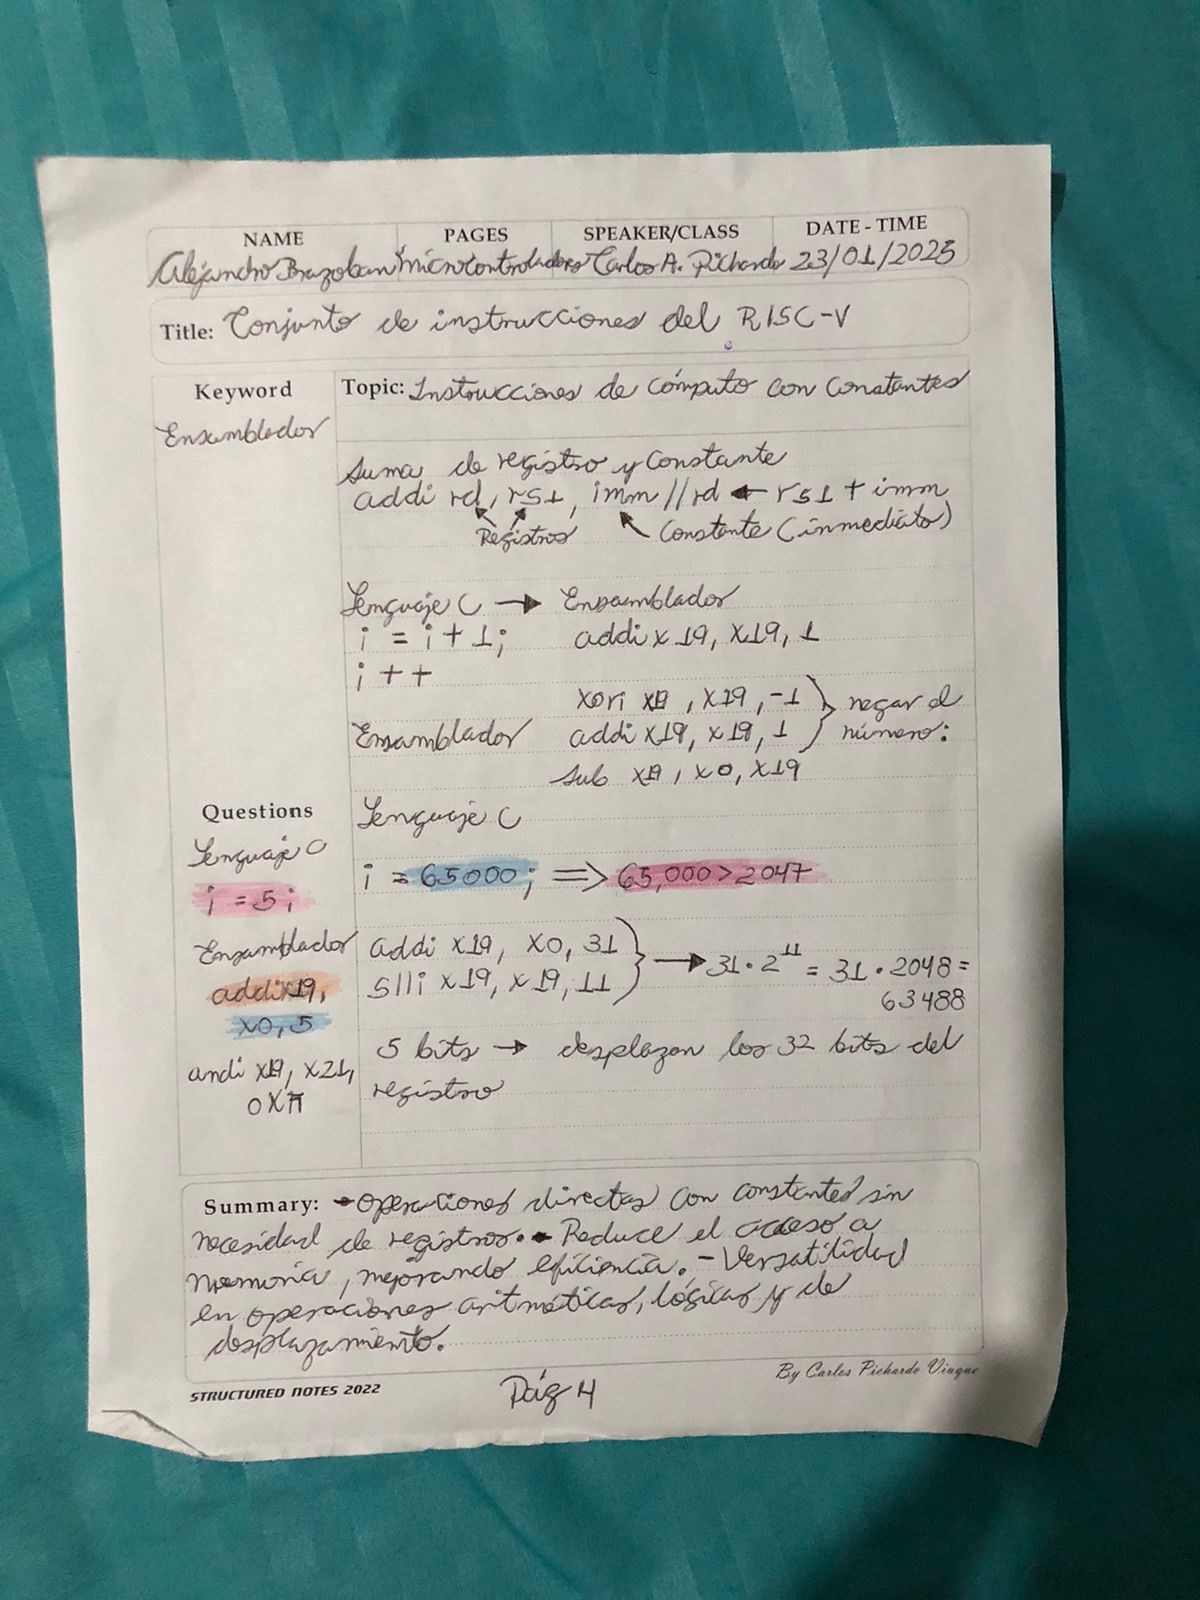 NAME PAGES SPEAKER/CLASS DATE - TIME
Alejandro Brazoban Microcontroladores Carlos A. Pichardo 23/01/2025
Title: Conjunto de instrucciones del RISC-V
Keyword
Ensamblador
Topic: Instrucciones de cómputo con constantes
Suma de registro y constante
addi rd, rs1, imm // rd ← rs1 + imm
Registros Constante (inmediato)
Lenguaje C → Ensamblador
i = i + 1; addi x19, x19, 1
i ++
xori x19, x19, -1
Ensamblador addi x19, x19, 1 } negar el número:
sub x19, x0, x19
Questions
Lenguaje C
i = 5;
Ensamblador
addi x19,
x0, 5
andi x19, x21,
Lenguaje C
i = 65000; => 65,000 > 2047
addi x19, x0, 31
slli x19, x19, 11 } → 31 · 2^11 = 31 · 2048 =
63488
5 bits → desplazan los 32 bits del
registro
Summary: - Operaciones directas con constantes sin
necesidad de registros. - Reduce el acceso a
memoria, mejorando eficiencia. - Versatilidad
en operaciones aritméticas, lógicas y de
desplazamiento.
STRUCTURED NOTES 2022
Pág 4
By Carlos Pichardo Viuque